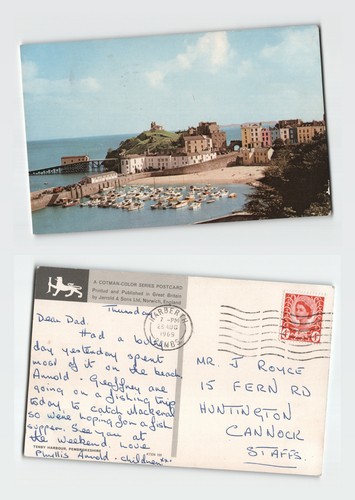 A COTMAN-COLOR SERIES POSTCARD
Printed and Published in Great Britain
by Jarrold & Sons Ltd, Norwich, England
Thursday
Dear Dad.
Had a
day yesterday spent
most of it on the beach
Arnold - Geoffrey are
going on a fishing trip
today, to catch Mackeral
so were hoping for a fish
supper. See you at
the weekend. Love
Phyllis Arnold - children
TENBY HARBOUR, PEMBROKESHIRE
NARBERTH
-PM
28 AUG
1969
PEMBS.
MR. J ROYCE
15 FERN RD
HUNTINGTON
CANNOCK
STAFFS.